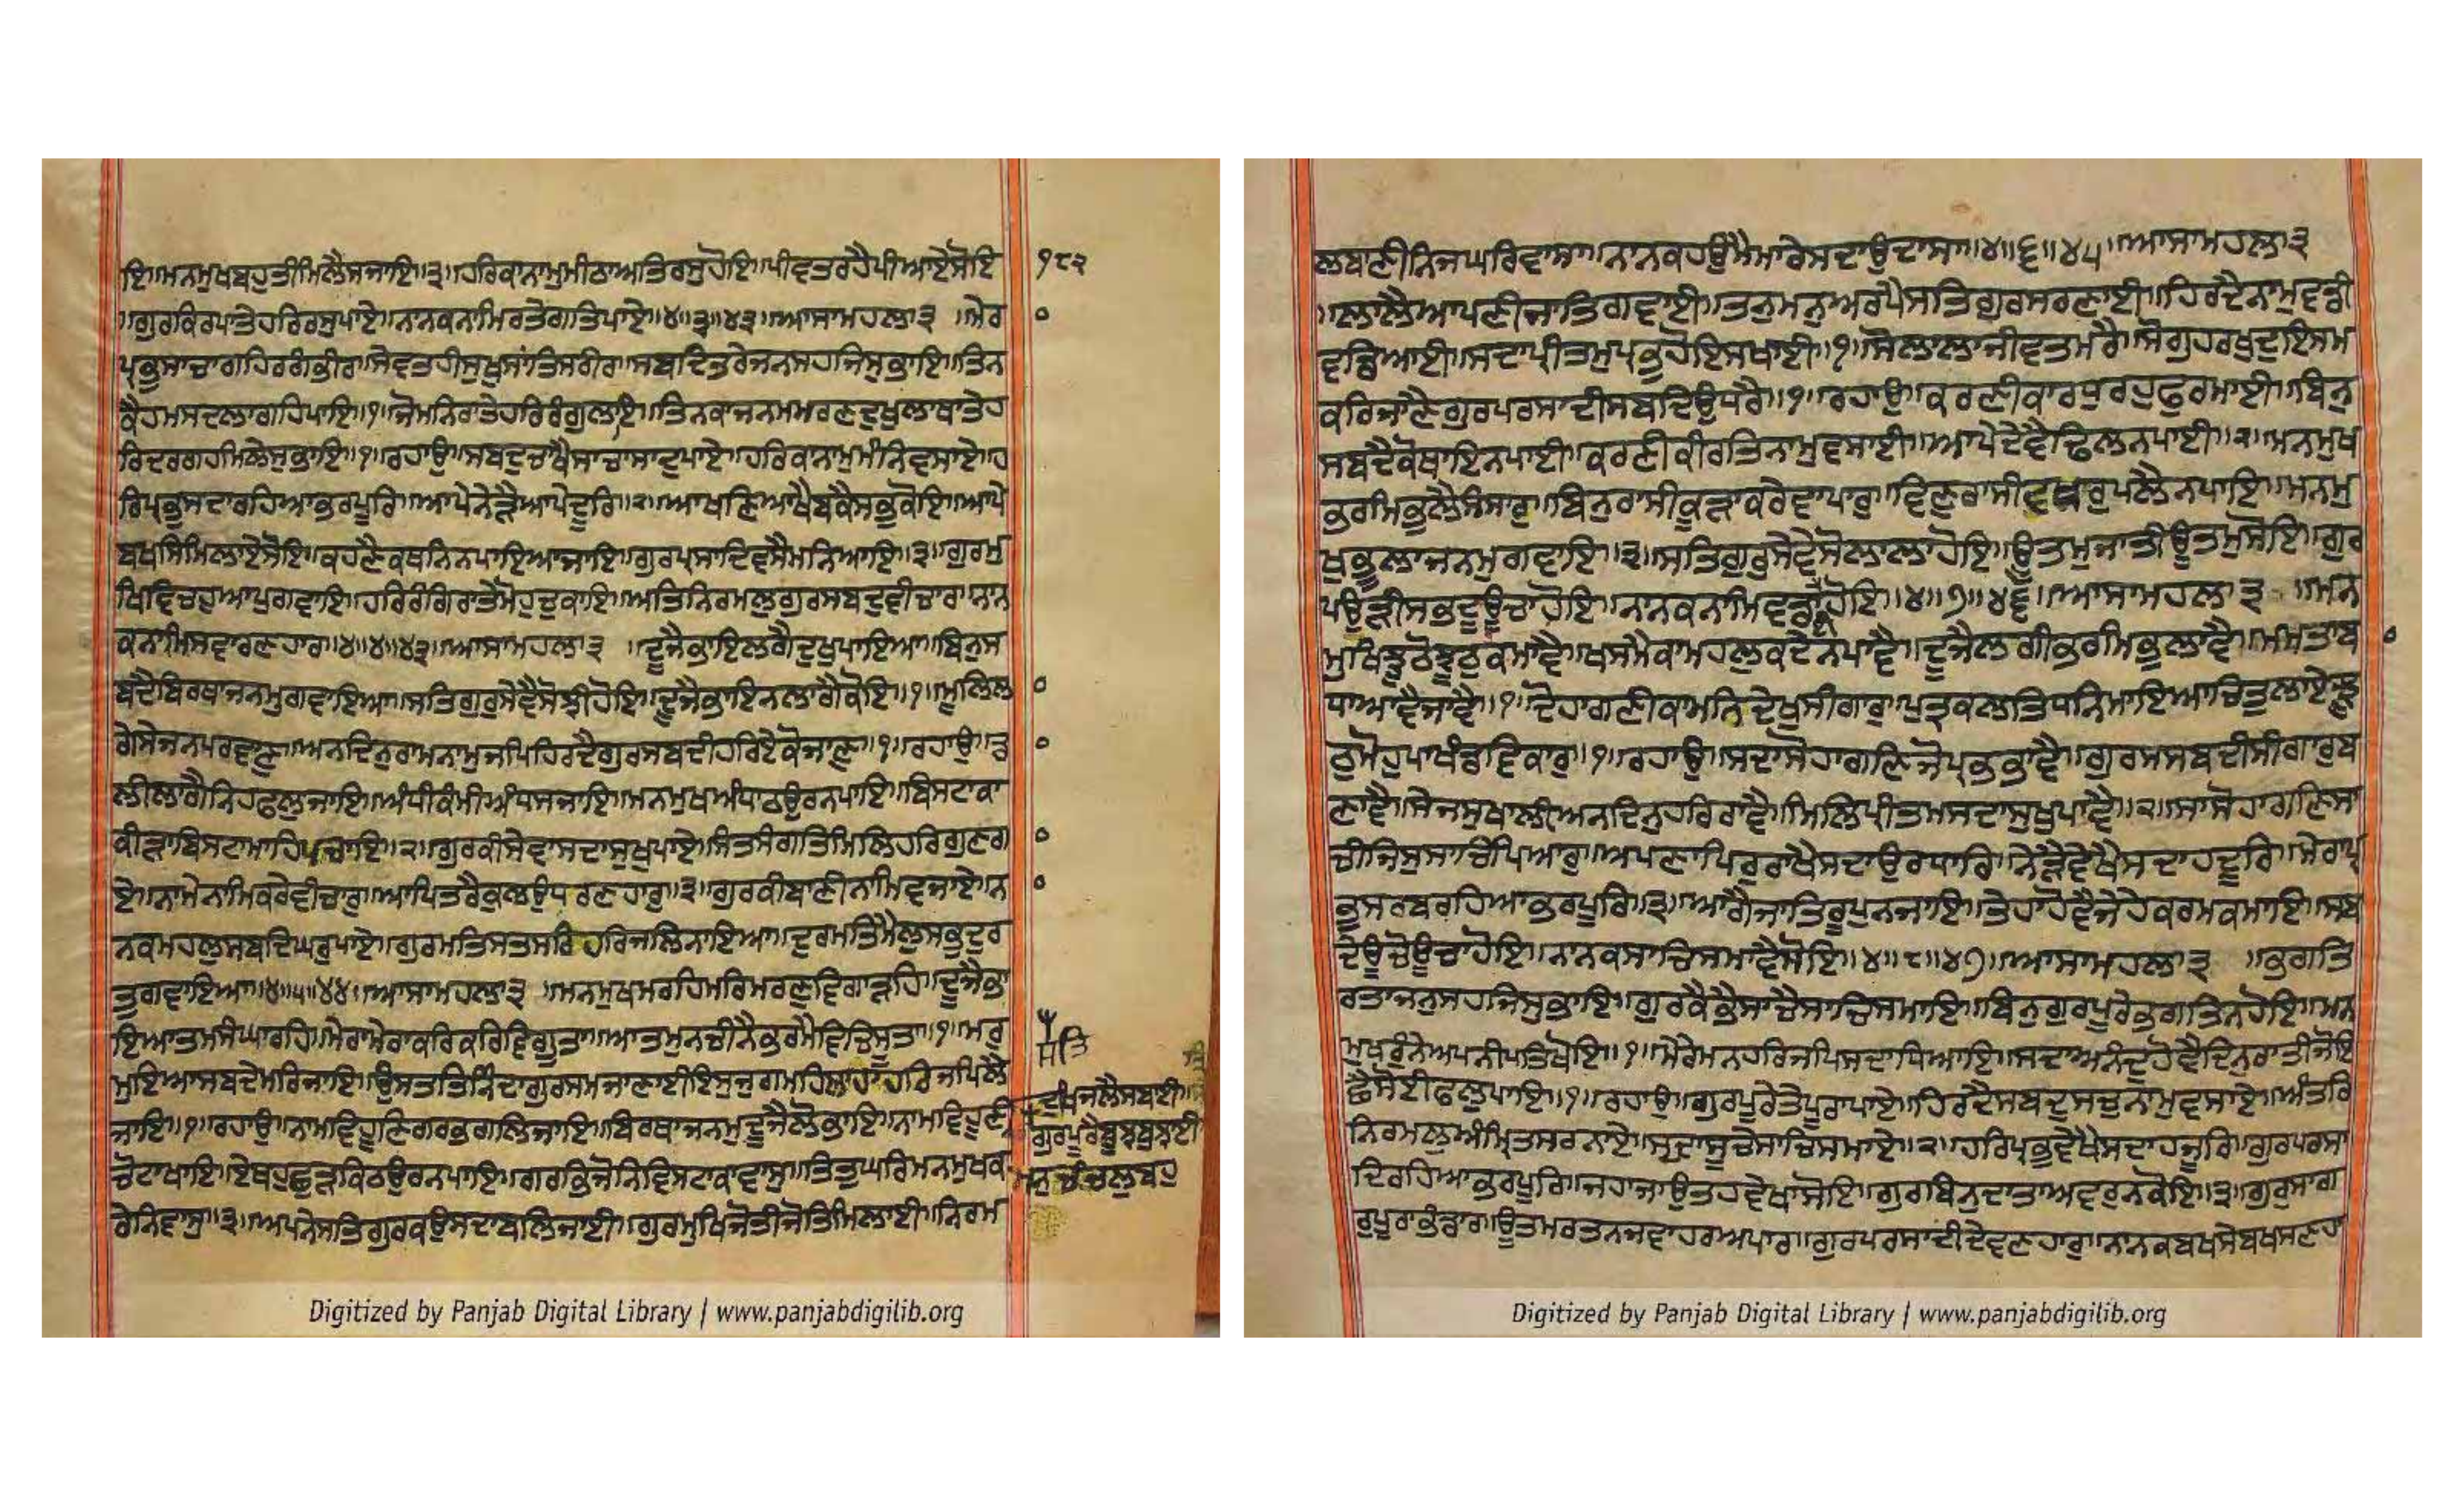 ਇ॥ਮਨਮੁਖਬਹੁਤੀਮਿਲੈਸਜਾਇ॥੩॥ਹਰਿਕਾਨਾਮੁਮੀਠਾਅਤਿਰਸੁਹੋਇ॥ਪੀਵਤਰਹੈਪੀਆਏਸੋਇ
੧੮੨
॥ਗੁਰਕਿਰਪਾਤੇਹਰਿਰਸੁਪਾਏ॥ਨਾਨਕਨਾਮਿਰਤੇਗਤਿਪਾਏ॥੪॥੩॥੪੨॥ਆਸਾਮਹਲਾ੩ ॥ਮੇਰ
ਪ੍ਰਭੁਸਾਚਾਗਹਿਰਗੰਭੀਰਾ॥ਸੇਵਤਹੀਸੁਖੁਸਾਂਤਿਸਰੀਰਾ॥ਸਬਦਿਤਰੇਜਨਸਹਜਿਸੁਭਾਇ॥ਤਿਨ
ਕੈਹਮਸਦਲਾਗਹਿਪਾਇ॥੧॥ਜੋਮਨਿਰਾਤੇਹਰਿਰੰਗੁਲਾਇ॥ਤਿਨਕਾਜਨਮਮਰਣਦੁਖੁਲਾਥਾਤੇਹ
ਰਿਦਰਗਹਮਿਲੇਸੁਭਾਇ॥੧॥ਰਹਾਉ॥ਸਬਦੁਚਾਖੈਸਾਚਾਸਾਦੁਪਾਏ॥ਹਰਿਕਾਨਾਮੁਮੰਨਿਵਸਾਏ॥ਹ
ਰਿਪ੍ਰਭੁਸਦਾਰਹਿਆਭਰਪੂਰਿ॥ਆਪੇਨੇੜੈਆਪੇਦੂਰਿ॥੨॥ਆਖਣਿਆਖੈਬਕੈਸਭੁਕੋਇ॥ਆਪੇ
ਬਖਸਿਮਿਲਾਏਸੋਇ॥ਕਹਣੈਕਥਨਿਨਪਾਇਆਜਾਇ॥ਗੁਰਪ੍ਰਸਾਦਿਵਸੈਮਨਿਆਇ॥੩॥ਗੁਰਮੁ
ਖਿਵਿਚਹੁਆਪੁਗਵਾਇ॥ਹਰਿਰੰਗਿਰਾਤੇਮੋਹੁਚੁਕਾਇ॥ਅਤਿਨਿਰਮਲੁਗੁਰਸਬਦੁਵੀਚਾਰਾ॥ਨਾਨ
ਕਨਾਮਿਸਵਾਰਣਹਾਰਾ॥੪॥੪॥੪੩॥ਆਸਾਮਹਲਾ੩ ॥ਦੂਜੈਭਾਇਲਗੈਦੁਖੁਪਾਇਆ॥ਬਿਨੁਸ
ਬਦੈਬਿਰਥਾਜਨਮੁਗਵਾਇਆ॥ਸਤਿਗੁਰੁਸੇਵੈਸੋਝੀਹੋਇ॥ਦੂਜੈਭਾਇਨਲਾਗੈਕੋਇ॥੧॥ਮੂਲਿਲਾ
ਗੇਸੇਜਨਪਰਵਾਣੁ॥ਅਨਦਿਨੁਰਾਮਨਾਮੁਜਪਿਹਿਰਦੈਗੁਰਸਬਦੀਹਰਿਏਕੋਜਾਣੁ॥੧॥ਰਹਾਉ॥ਡ
ਲੀਲਾਗੈਨਿਹਫਲੁਜਾਇ॥ਅੰਧੀਕੰਮੀਅੰਧਸਜਾਇ॥ਮਨਮੁਖਅੰਧਾਠਉਰਨਪਾਇ॥ਬਿਸਟਾਕਾ
ਕੀੜਾਬਿਸਟਾਮਾਹਿਪਚਾਇ॥੨॥ਗੁਰਕੀਸੇਵਾਸਦਾਸੁਖੁਪਾਏ॥ਸੰਤਸੰਗਤਿਮਿਲਿਹਰਿਗੁਣਗਾ
ਏ॥ਨਾਮੇਨਾਮਿਕਰੇਵੀਚਾਰੁ॥ਆਪਿਤਰੈਕੁਲਉਧਰਣਹਾਰੁ॥੩॥ਗੁਰਕੀਬਾਣੀਨਾਮਿਵਜਾਏ॥ਨਾ
ਨਕਮਹਲੁਸਬਦਿਘਰੁਪਾਏ॥ਗੁਰਮਤਿਸਤਸਰਿਹਰਿਜਲਿਨਾਇਆ॥ਦੁਰਮਤਿਮੈਲੁਸਭੁਦੁਰ
ਤੁਗਵਾਇਆ॥੪॥੫॥੪੪॥ਆਸਾਮਹਲਾ੩ ॥ਮਨਮੁਖਮਰਹਿਮਰਿਮਰਣੁਵਿਗਾੜਹਿ॥ਦੂਜੈਭਾ
ਇਆਤਮਸੰਘਾਰਹਿ॥ਮੇਰਾਮੇਰਾਕਰਿਕਰਿਵਿਗੂਤਾ॥ਆਤਮੁਨਚੀਨੈਭਰਮੈਵਿਚਿਸੂਤਾ॥੧॥ਮਰੁ
ਮੁਇਆਸਬਦੇਮਰਿਜਾਇ॥ਉਸਤਤਿਨਿੰਦਾਗੁਰਸਮਜਾਣਾਈਇਸੁਜੁਗਮਹਿਲਾਹਾਹਰਿਜਪਿਲੈ
ਜਾਇ॥੧॥ਰਹਾਉ॥ਨਾਮਵਿਹੂਣਿਗਰਭਗਲਿਜਾਇ॥ਬਿਰਥਾਜਨਮੁਦੂਜੈਲੋਭਾਇ॥ਨਾਮਵਿਹੂਣੀ
ਦੁਖਿਜਲੈਸਬਾਈ॥
ਗੁਰਪੂਰੈਬੂਝਬੁਝਾਈ
ਮਨੁਚੰਚਲੁਬਹੁ
ਚੋਟਾਖਾਇ॥ਏਥਹੁਛੁੜਕਿਠਉਰਨਪਾਇ॥ਗਰਭਿਜੋਨਿਵਿਸਟਾਕਾਵਾਸੁ॥ਤਿਤੁਘਰਿਮਨਮੁਖਕ
ਰੇਨਿਵਾਸੁ॥੩॥ਅਪਨੇਸਤਿਗੁਰਕਉਸਦਾਬਲਿਜਾਈ॥ਗੁਰਮੁਖਿਜੋਤੀਜੋਤਿਮਿਲਾਈ॥ਨਿਰਮ
Digitized by Panjab Digital Library | www.panjabdigilib.org
ਲਬਾਣੀਨਿਜਘਰਿਵਾਸਾ॥ਨਾਨਕਹਉਮੈਮਾਰੇਸਦਾਉਦਾਸਾ॥੪॥੬॥੪੫॥ਆਸਾਮਹਲਾ੩
॥ਲਾਲੈਆਪਣੀਜਾਤਿਗਵਾਈ॥ਤਨੁਮਨੁਅਰਪੈਸਤਿਗੁਰਸਰਣਾਈ॥ਹਿਰਦੈਨਾਮੁਵਡੀ
ਵਡਿਆਈ॥ਸਦਾਪ੍ਰੀਤਮੁਪ੍ਰਭੁਹੋਇਸਖਾਈ॥੧॥ਸੋਲਾਲਾਜੀਵਤਮਰੈ॥ਸੋਗੁਹਰਖੁਦੁਇਸਮ
ਕਰਿਜਾਣੈਗੁਰਪਰਸਾਦੀਸਬਦਿਉਧਰੈ॥੧॥ਰਹਾਉ॥ਕਰਣੀਕਾਰਧੁਰਹੁਫੁਰਮਾਈ॥ਬਿਨੁ
ਸਬਦੈਕੋਥਾਇਨਪਾਈ॥ਕਰਣੀਕੀਰਤਿਨਾਮੁਵਸਾਈ॥ਆਪੇਦੇਵੈਢਿਲਨਪਾਈ॥੨॥ਮਨਮੁਖ
ਭਰਮਿਭੁਲੈਸੰਸਾਰੁ॥ਬਿਨੁਰਾਸੀਕੂੜਾਕਰੇਵਾਪਾਰੁ॥ਵਿਣੁਰਾਸੀਵਖਰੁਪਲੈਨਪਾਇ॥ਮਨਮੁ
ਖੁਭੁਲਾਜਨਮੁਗਵਾਇ॥੩॥ਸਤਿਗੁਰੁਸੇਵੈਸੋਲਾਲਾਹੋਇ॥ਊਤਮੁਜਾਤੀਊਤਮੁਸੋਇ॥ਗੁਰ
ਪਉੜੀਸਭਦੂਊਚਾਹੋਇ॥ਨਾਨਕਨਾਮਿਵਡਾਈਹੋਇ॥੪॥੭॥੪੬॥ਆਸਾਮਹਲਾ੩ ॥ਮਨ
ਮੁਖਿਝੂਠੋਝੂਠੁਕਮਾਵੈ॥ਖਸਮੈਕਾਮਹਲੁਕਦੇਨਪਾਵੈ॥ਦੂਜੈਲਗੀਭਰਮਿਭੁਲਾਵੈ॥ਮਮਤਾਬਾ
ਧਾਆਵੈਜਾਵੈ॥੧॥ਦੋਹਾਗਣੀਕਾਮਨਿਦੇਖੁਸੀਗਾਰੁ॥ਪੁਤ੍ਰਕਲਤਿਧਨਿਮਾਇਆਚਿਤੁਲਾਏਝੂ
ਠੁਮੋਹੁਪਾਖੰਡਵਿਕਾਰੁ॥੧॥ਰਹਾਉ॥ਸਦਾਸੋਹਾਗਣਿਜੋਪ੍ਰਭਭਾਵੈ॥ਗੁਰਸਬਦੀਸੀਗਾਰੁਬ
ਣਾਵੈ॥ਸੇਜਸੁਖਾਲੀਅਨਦਿਨੁਹਰਿਰਾਵੈ॥ਮਿਲਿਪ੍ਰੀਤਮਸਦਾਸੁਖੁਪਾਵੈ॥੨॥ਸਾਸੋਹਾਗਣਿਸਾ
ਚੀਜਿਸੁਸਾਚਿਪਿਆਰੁ॥ਅਪਣਾਪਿਰੁਰਾਖੈਸਦਾਉਰਧਾਰਿ॥ਨੇੜੈਵੇਖੈਸਦਾਹਦੂਰਿ॥ਮੇਰਾਪ੍ਰ
ਭੁਸਰਬਰਹਿਆਭਰਪੂਰਿ॥੩॥ਆਗੈਜਾਤਿਰੂਪੁਨਜਾਇ॥ਤੇਹਾਹੋਵੈਜੇਹੇਕਰਮਕਮਾਇ॥ਸਬ
ਦੇਊਚੋਊਚਾਹੋਇ॥ਨਾਨਕਸਾਚਿਸਮਾਵੈਸੋਇ॥੪॥੮॥੪੭॥ਆਸਾਮਹਲਾ੩ ॥ਭਗਤਿ
ਰਤਾਜਨੁਸਹਜਿਸੁਭਾਇ॥ਗੁਰਕੈਭੈਸਾਚੈਸਾਚਿਸਮਾਇ॥ਬਿਨੁਗੁਰਪੂਰੇਭਗਤਿਨਹੋਇ॥ਮਨ
ਮੁਖਰੁੰਨੇਅਪਨੀਪਤਿਖੋਇ॥੧॥ਮੇਰੇਮਨਹਰਿਜਪਿਸਦਾਧਿਆਇ॥ਸਦਾਅਨੰਦੁਹੋਵੈਦਿਨੁਰਾਤੀਜੋਇ
ਛੈਸੋਈਫਲੁਪਾਇ॥੧॥ਰਹਾਉ॥ਗੁਰਪੂਰੇਤੇਪੂਰਾਪਾਏ॥ਹਿਰਦੈਸਬਦੁਸਚੁਨਾਮੁਵਸਾਏ॥ਅੰਤਰਿ
ਨਿਰਮਲੁਅੰਮ੍ਰਿਤਸਰਨਾਏ॥ਸਦਾਸੂਚੇਸਾਚਿਸਮਾਏ॥੨॥ਹਰਿਪ੍ਰਭੁਵੇਖੈਸਦਾਹਜੂਰਿ॥ਗੁਰਪਰਸਾ
ਦਿਰਹਿਆਭਰਪੂਰਿ॥ਜਹਾਜਾਉਤਹਵੇਖਾਸੋਇ॥ਗੁਰਬਿਨੁਦਾਤਾਅਵਰੁਨਕੋਇ॥੩॥ਗੁਰੁਸਾਗ
ਰੁਪੂਰਾਭੰਡਾਰਾ॥ਊਤਮਰਤਨਜਵਾਹਰਅਪਾਰਾ॥ਗੁਰਪਰਸਾਦੀਦੇਵਣਹਾਰੁ॥ਨਾਨਕਬਖਸੇਬਖਸਣਹਾ
Digitized by Panjab Digital Library | www.panjabdigilib.org